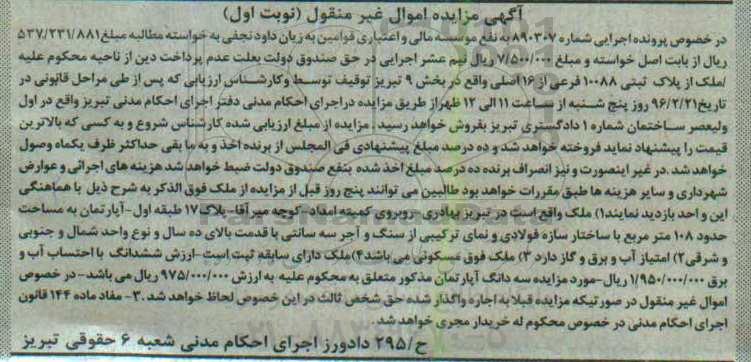 آگهی مزایده اموال غیر منقول (نوبت اول)
در خصوص پرونده اجرایی شماره ۸۹۰۳۰۷ به نفع موسسه مالی و اعتباری قوامین به زیان داود نجفی به خواسته مطالبه مبلغ ۵۳۷/۲۳۱/۸۸۱
ریال از بابت اصل خواسته و مبلغ ۷/۵۰۰/۰۰۰ ریال نیم عشر اجرایی در حق صندوق دولت بعلت عدم پرداخت دین از ناحیه محکوم علیه
/ملک از پلاک ثبتی ۱۰۰۸۸ فرعی از ۱۶ اصلی واقع در بخش ۹ تبریز توقیف توسط وکارشناس ارزیابی که پس از طی مراحل قانونی در
تاریخ ۹۶/۲/۲۱ روز پنج شنبه از ساعت ۱۱ الی ۱۲ ظهر از طریق مزایده در اجرای احکام مدنی دفتر اجرای احکام مدنی تبریز واقع در اول
ولیعصر ساختمان شماره ۱ دادگستری تبریز بفروش خواهد رسید . مزایده از مبلغ ارزیابی شده کارشناس شروع و به کسی که بالاترین
قیمت را پیشنهاد نماید فروخته خواهد شد و ده درصد مبلغ پیشنهادی فی المجلس از برنده اخذ و به ما بقی حداکثر ظرف یکماه وصول
خواهد شد .در غیر اینصورت و نیز انصراف برنده ده درصد مبلغ اخذ شده بنفع صندوق دولت ضبط خواهد شد هزینه های اجرائی و عوارض
شهرداری و سایر هزینه ها طبق مقررات خواهد بود طالبین می توانند پنج روز قبل از مزایده از ملک فوق الذکر به شرح ذیل با هماهنگی
این واحد بازدید نمایند۱) ملک واقع است در تبریز بهادری- روبروی کمیته امداد- کوچه میر آقا- پلاک ۱۷ طبقه اول- آپارتمان به مساحت
حدود ۱۰۸ متر مربع با ساختار سازه فولادی و نمای ترکیبی از سنگ و آجر سه سانتی با قدمت بالای ده سال و نوع واحد شمال و جنوبی
و شرقی۲) امتیاز آب و برق و گاز دارد ۳) ملک فوق مسکونی می باشد۴)ملک دارای سابقه ثبت است -ارزش ششدانگ با احتساب آب و
برق ۱/۹۵۰/۰۰۰/۰۰۰ ریال-مورد مزایده سه دانگ آپارتمان مذکور متعلق به محکوم علیه به ارزش ۹۷۵/۰۰۰/۰۰۰ ریال می باشد- در خصوص
اموال غیر منقول در صورتیکه مزایده قبلا به اجاره واگذار شده حق شخص ثالث در این خصوص لحاظ خواهد شد .۳- مفاد ماده ۱۴۴ قانون
اجرای احکام مدنی در خصوص محکوم له خریدار مجری خواهد شد
ح/۲۹۵ دادورز اجرای احکام مدنی شعبه ۶ حقوقی تبریز